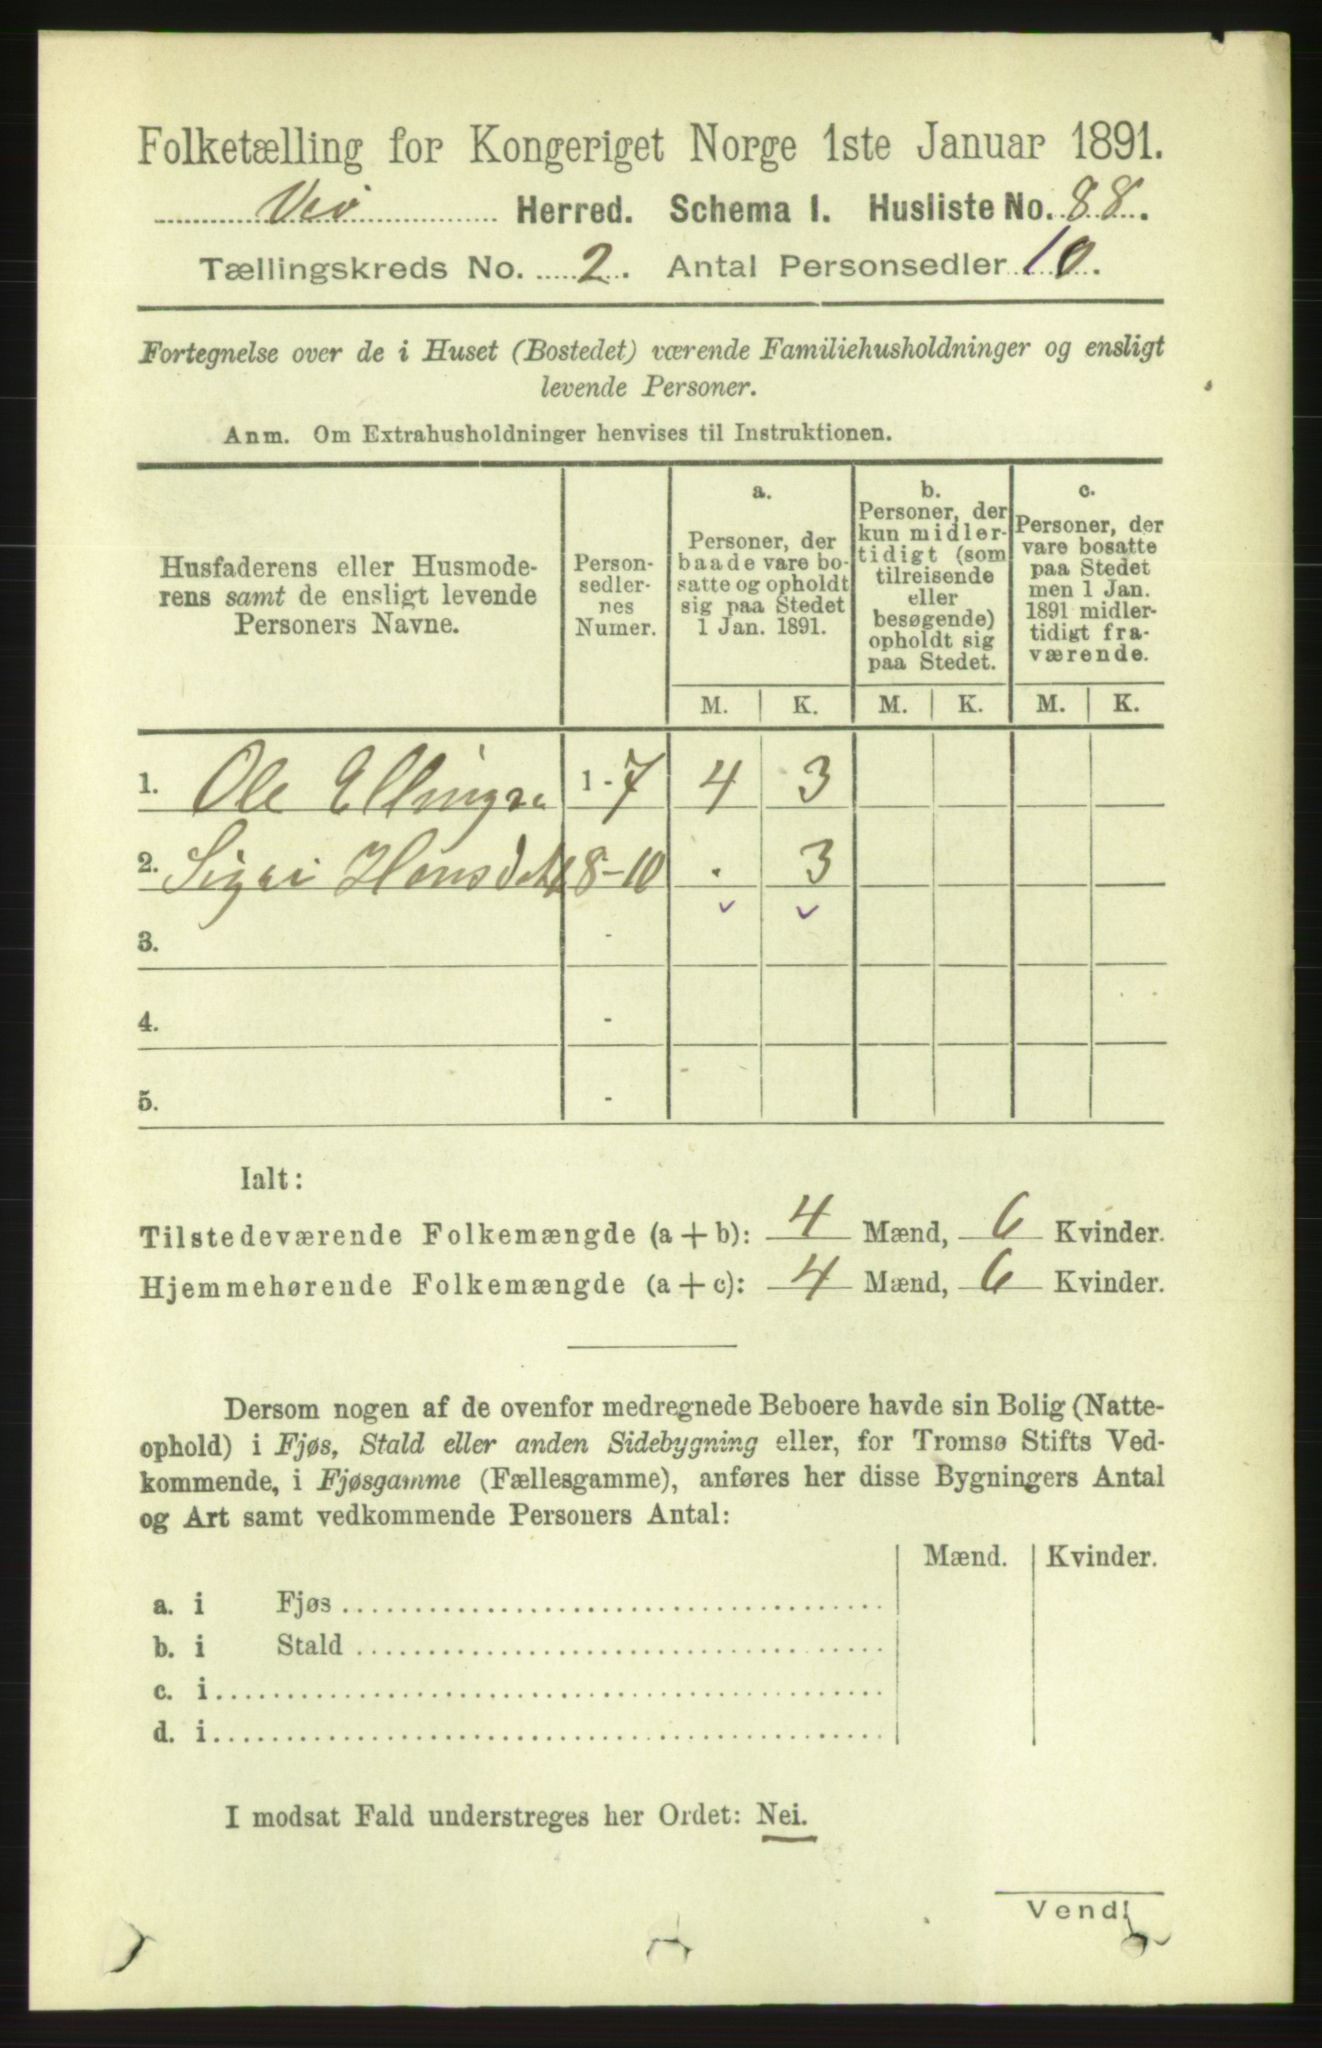 Folketælling for Kongeriget Norge 1ste Januar 1891.
Veø Herred. Schema I. Husliste No. 88.
Tællingskreds No. 2. Antal Personsedler 10.
Fortegnelse over de i Huset (Bostedet) værende Familiehusholdninger og ensligt
levende Personer.
Anm. Om Extrahusholdninger henvises til Instruktionen.
Husfaderens eller Husmode-
rens samt de ensligt levende
Personers Navne.
Person-
sedler-
nes
Numer.
a.
Personer, der
baade vare bo-
satte og opholdt
sig paa Stedet
1 Jan. 1891.
b.
Personer, der
kun midler-
tidigt (som
tilreisende
eller
besøgende)
opholdt sig
paa Stedet.
c.
Personer, der
vare bosatte
paa Stedet
men 1 Jan.
1891 midler-
tidigt fra-
værende.
M. K. M. K. M. K.
1. Ole Ellingsen 1-7 4 3
2. Sigri Hansdatt 8-10 . 3
3. -
4. -
5. -
Ialt:
Tilstedeværende Folkemængde (a+b): 4 Mænd, 6 Kvinder.
Hjemmehørende Folkemængde (a+c): 4 Mænd, 6 Kvinder.
Dersom nogen af de ovenfor medregnede Beboere havde sin Bolig (Natte-
ophold) i Fjøs, Stald eller anden Sidebygning eller, for Tromsø Stifts Ved-
kommende, i Fjøsgamme (Fællesgamme), anføres her disse Bygningers Antal
og Art samt vedkommende Personers Antal:
Mænd. Kvinder.
a. i Fjøs
b. i Stald
c. i
d. i
I modsat Fald understreges her Ordet: Nei.
Vend!